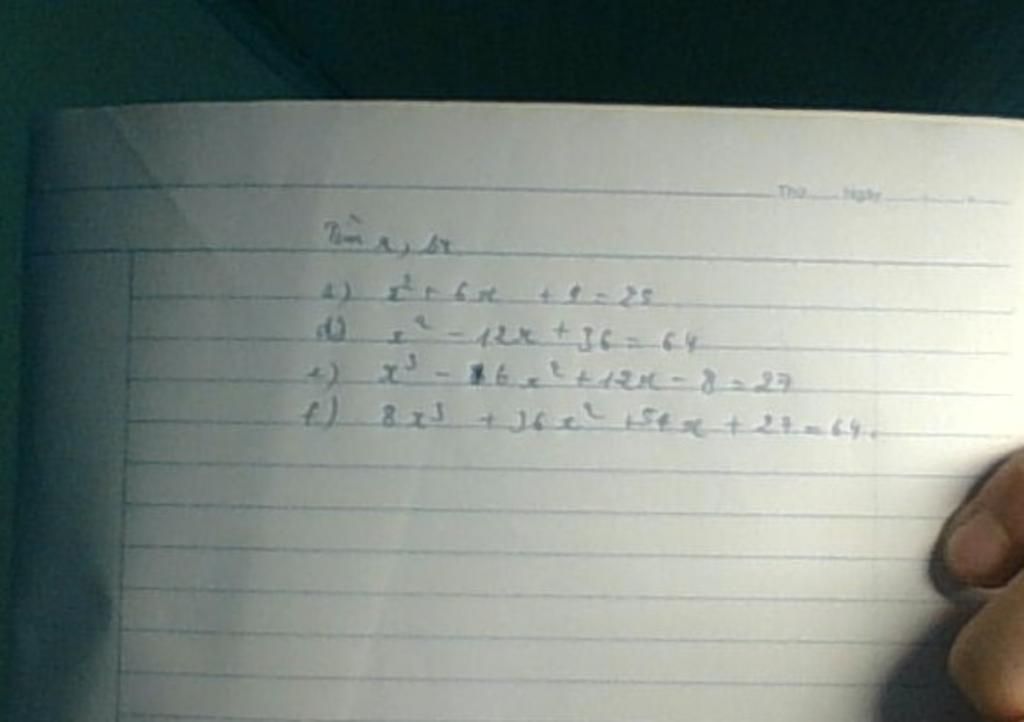 Thứ Ngày
Tìm x, bt
x² + 6x + 9 = 25
d) x² - 12x + 36 = 64
e) x³ - 6x² + 12x - 8 = 27
f) 8x³ + 36x² + 54x + 27 = 64.